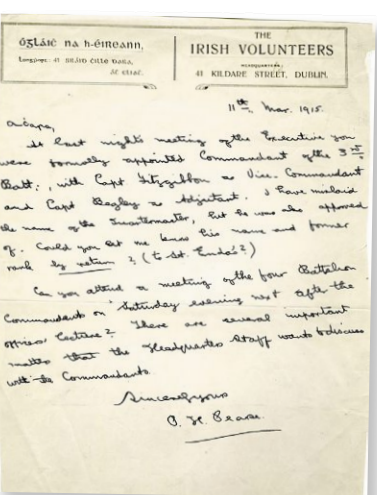 Óglaíċ na h-Éireann,
THE
IRISH VOLUNTEERS
HEADQUARTERS:
41 KILDARE STREET, DUBLIN.
11th Mar. 1915.
A chara,
At last night's meeting of the Executive you
were formally appointed Commandant of the 3rd
Batt., with Capt Fitzgibbon as Vice-Commandant
and Capt Begley as Adjutant. I have mislaid
the name of the Quartermaster, but he was also approved
of. Could you let me know his name and former
rank by return? (to St. Enda's?)
Can you attend a meeting of the four Battalion
Commandants on Saturday evening next after the
officers' lecture? There are several important
matters that the Headquarters Staff wants to discuss
with the Commandants.
Sincerely yours
P. H. Pearse.